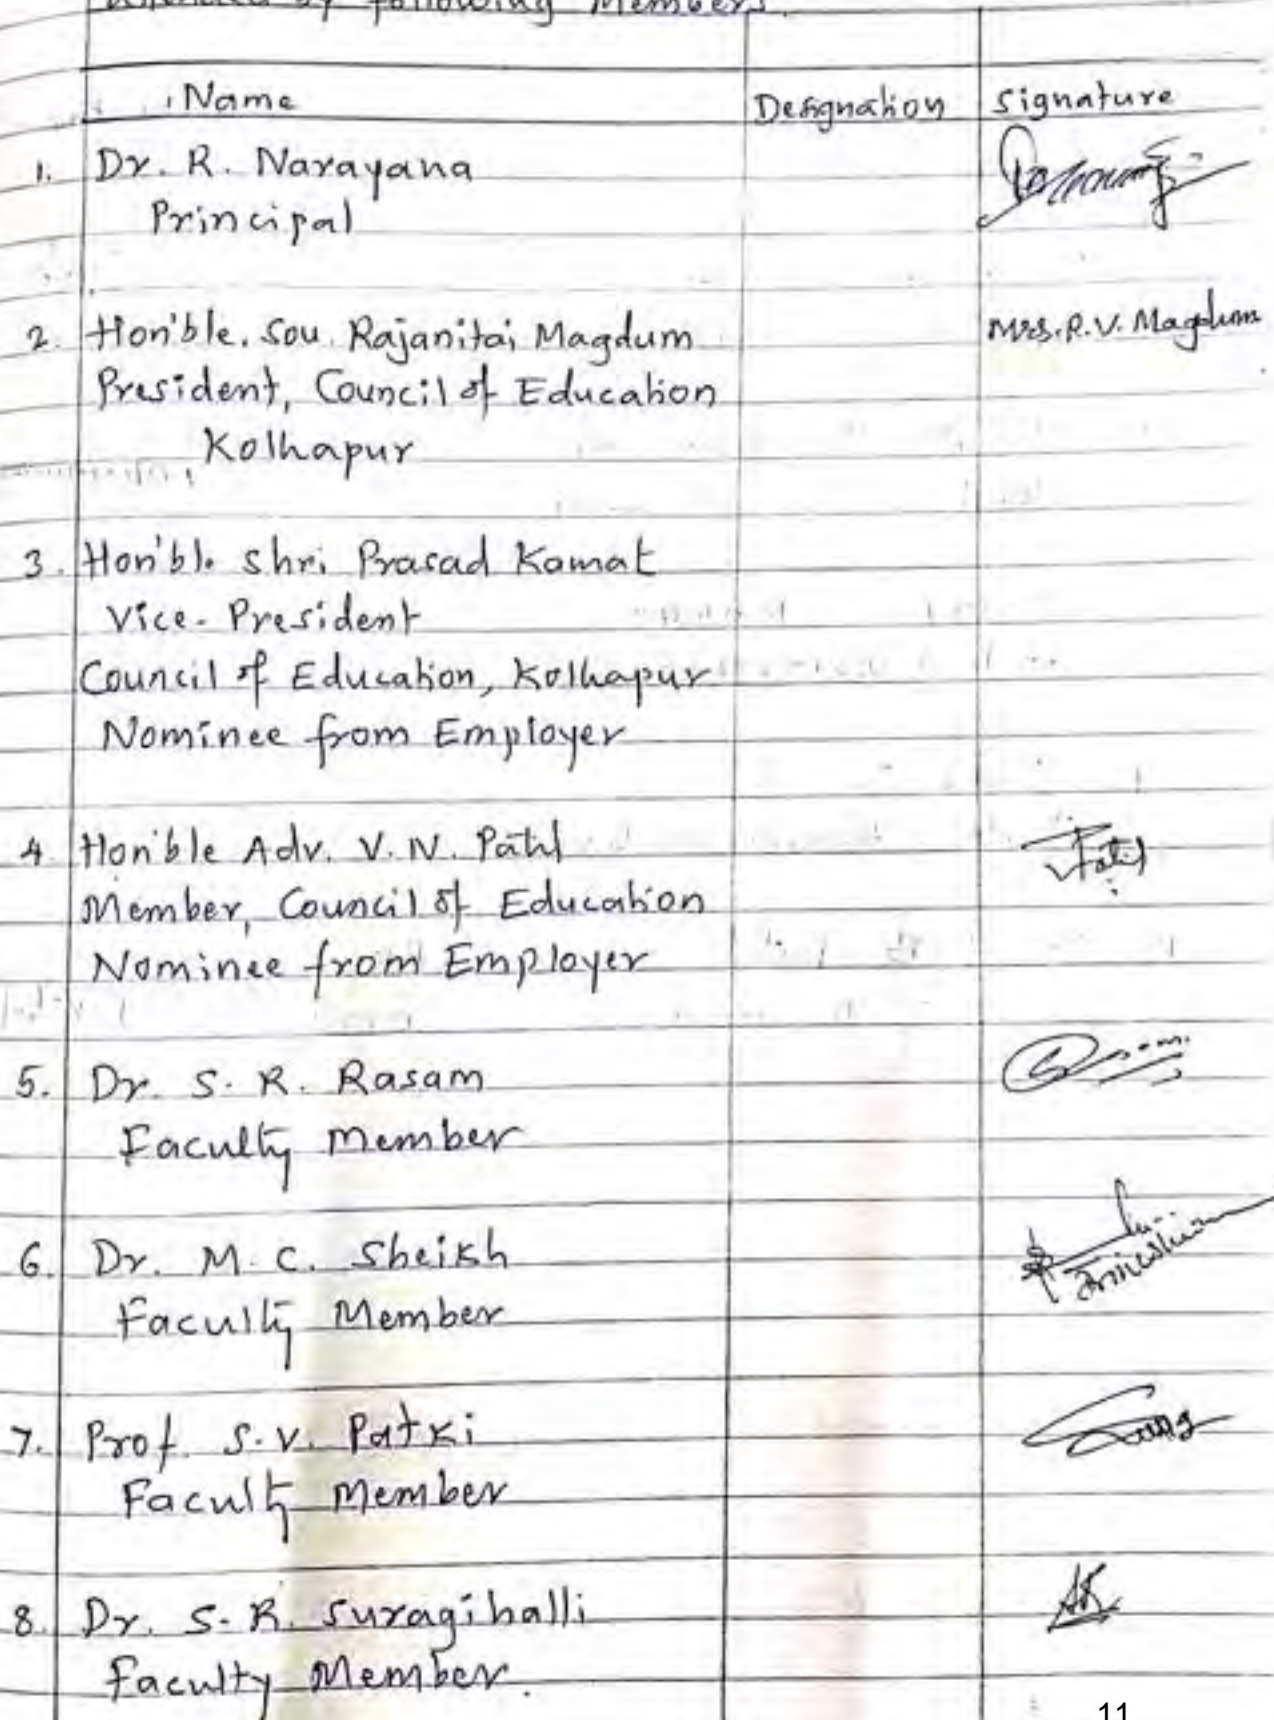 attended by following Members.
Name Designation Signature
1. Dr. R. Narayana
Principal
2. Hon'ble. Sou. Rajanitai Magdum Mrs. R. V. Magdum
President, Council of Education
Kolhapur
3. Hon'ble Shri Prasad Kamat
Vice-President
Council of Education, Kolhapur
Nominee from Employer
4 Hon'ble Adv. V. N. Patil
Member, Council of Education
Nominee from Employer
5. Dr. S. R. Rasam
Faculty Member
6. Dr. M. C. Sheikh
Faculty Member
7. Prof. S. V. Patki
Faculty Member
8. Dr. S. R. Suragihalli
Faculty Member.
11